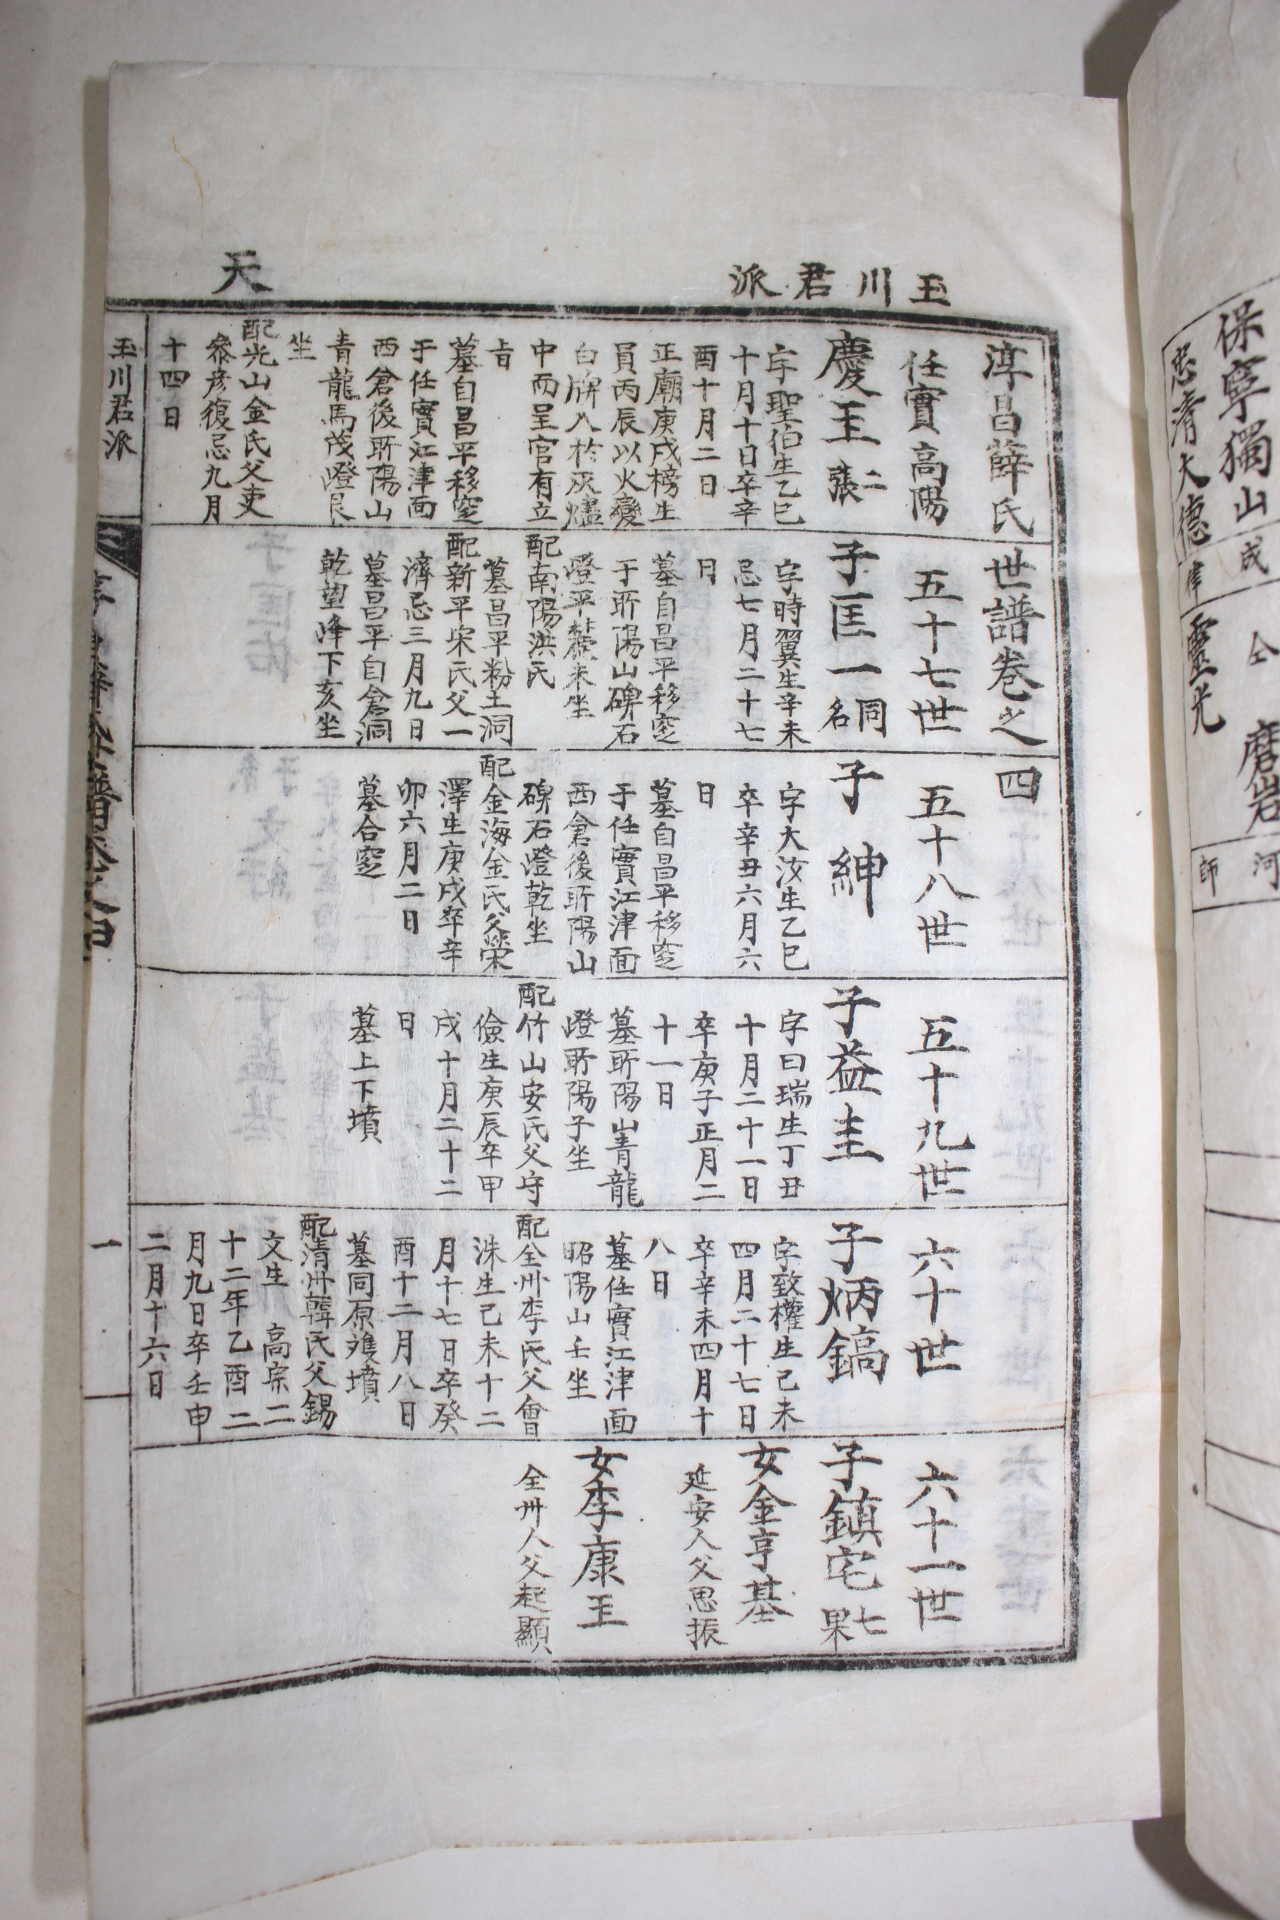 玉川君派
天
淳昌薛氏世譜卷之四
任實高陽
慶玉 二張
字聖伯生乙巳
十月十日卒辛
酉十月二日
正廟庚戌榜生
員丙辰以火變
白牌入於灰燼
中而呈官有立
旨
墓自昌平移窆
于任實江津面
西倉後昕陽山
青龍馬茂嶝艮
坐
配光山金氏父吏
參彦復忌九月
十四日
五十七世
子匡一 同名
字時翼生辛未
忌七月二十七
日
墓自昌平移窆
于昕陽山碑石
嶝平麓未坐
配南陽洪氏
墓昌平粉土洞
配新平宋氏父一
濟忌三月九日
墓昌平自倉洞
乾望峰下亥坐
五十八世
子紳
字大汝生乙巳
卒辛丑六月六
日
墓自昌平移窆
于任實江津面
西倉後昕陽山
碑石嶝乾坐
配金海金氏父榮
澤生庚戌卒辛
卯六月二日
墓合窆
五十九世
子益圭
字曰瑞生丁丑
十月二十一日
卒庚子正月二
十一日
墓昕陽山青龍
嶝昕陽子坐
配竹山安氏父守
儉生庚辰卒甲
戌十月二十二
日
墓上下墳
六十世
子炳鎬
字致權生己未
四月二十七日
卒辛未四月十
八日
墓任實江津面
昭陽山壬坐
配全州李氏父會
洙生己未十二
月十七日卒癸
酉十二月八日
墓同原雙墳
配清州韓氏父錫
文生 高宗二
十二年乙酉二
月九日卒壬申
二月十六日
六十一世
子鎭宅 七果
女金亨基
延安人父思振
女李康玉
全州人父起顯
玉川君派
一
保寧獨山
忠清大德
成
律
靈光
仝
磨岩
河
師